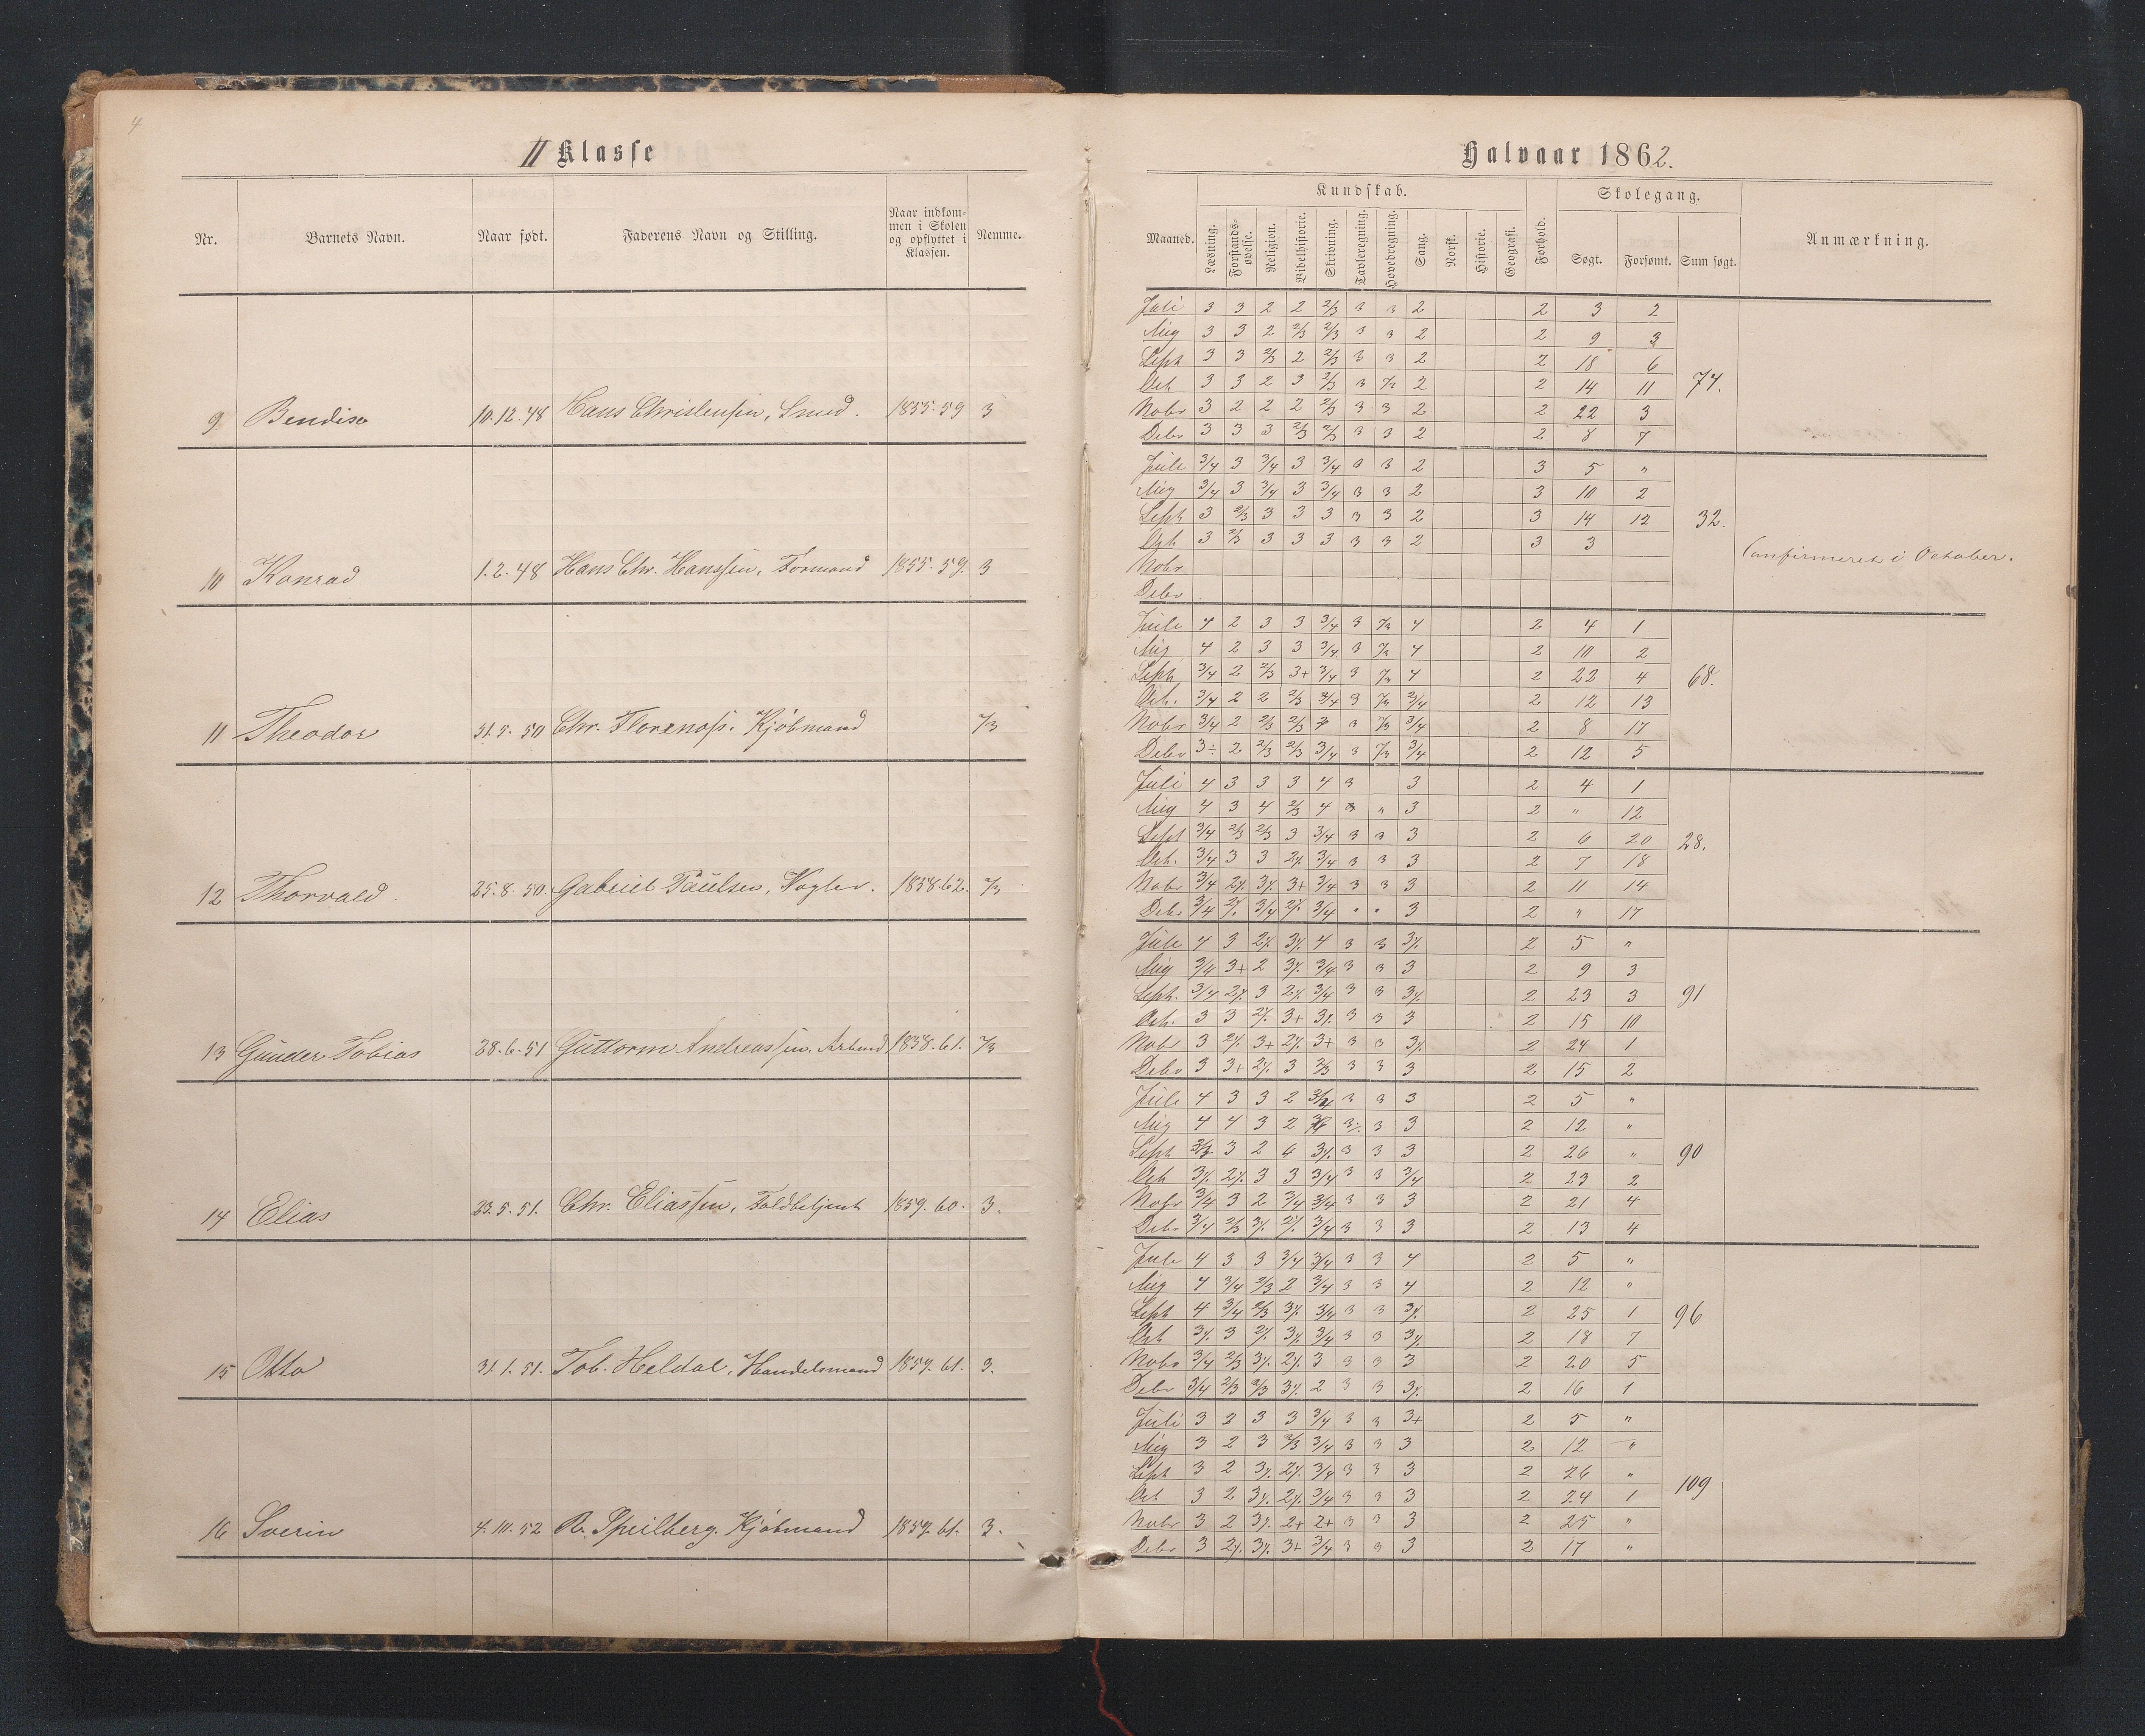 4
II Klasse
Halvaar 1862.
Nr. Barnets Navn. Naar født. Faderens Navn og Stilling. Naar indkommen i Skolen og opflyttet i Klassen. Nemme.
Maaned. Kundskab. Læsning. Forstandsøvelse. Religion. Bibelhistorie. Skrivning. Tavleregning. Hovedregning. Sang. Norsk. Historie. Geografi. Forhold. Skolegang. Søgt. Forsømt. Sum søgt. Anmærkning.
9 Bendise 10.12.48 Hans Christensen, Smed. 1855.59 3
Juli 3 3 2 2 2/3 3 3 2 2 3 2
Aug 3 3 2 2/3 2/3 3 3 2 2 9 3
Sept 3 3 2/3 2 2/3 3 3 2 2 18 6
Oct 3 3 2 3 2/3 3 2 2 14 11
Nobr 3 2 2 2 2/3 3 3 2 2 22 3
Debr 3 3 3 2/3 2/3 3 3 2 2 8 7
74.
10 Konrad 1.2.48 Hans Chr. Hanssen, Formand 1855.59. 3
Juli 3/4 3 3/4 3 3/4 3 3 2 3 5 "
Aug 3/4 3 3/4 3 3/4 3 3 2 3 10 2
Sept 3 2/3 3 3 3 3 3 2 3 14 12
Oct 3 2/3 3 3 3 3 3 2 3 3
Nobr
Debr
32.
Confirmeret i October.
11 Theodor 31.5.50 Chr. Kjøbmand
Juli 4 2 3 3 3/4 3 4 2 4 1
Aug 4 2 3 3 3/4 3 4 2 10 2
Sept 3/4 2 2/3 3+ 3/4 3 4 2 22 4
Oct. 3/4 2 2 2/3 3/4 3 3/4 2 12 13
Nobr 3/4 2 2/3 2/3 3 3/4 2 8 17
Debr 3÷ 2 2/3 2/3 3/4 3 3/4 2 12 5
68.
12 Thorvald 25.8.50. Gabriel Paulsen, 1858.62.
Juli 4 3 3 3 4 3 3 2 4 1
Aug 4 3 4 2/3 4 " 3 2 " 12
Sept 3/4 2/3 2/3 3 3/4 3 3 3 2 6 20
Oct. 3/4 3 3 2÷ 3/4 3 3 3 2 7 18
Nobr 3/4 2÷ 3÷ 3+ 3/4 3 3 3 2 11 14
Debr 3/4 2÷ 3/4 2÷ 3/4 " " 3 2 " 17
28.
13 Gunder Tobias 28.6.51 Guttorm Andreassen, Arbmd 1858.61.
Juli 4 3 2÷ 3÷ 4 3 3 3÷ 2 5 "
Aug 3/4 3+ 2 3÷ 3/4 3 3 3 2 9 3
Sept. 3/4 2÷ 3 2÷ 3/4 3 3 3÷ 2 23 3
Oct. 3 3 2÷ 3+ 3÷ 3 3 3 2 15 10
Nobr 3 2÷ 3+ 2÷ 3+ 3 3 3÷ 2 24 1
Debr 3 3+ 2÷ 3 2/3 3 3 3 2 15 2
91
14 Elias 23.5.51. Chr. Eliassen, Toldbetjent 1859.60. 3.
Juli 4 3 3 2 3/4 3 3 3 2 5 "
Aug 4 4 3 2 3÷ 3 3 2 12 "
Sept 3 2 3÷ 3 3 3 2 26 "
Oct 3÷ 2÷ 3 3 3/4 3 3 3/4 2 23 2
Nobr 3/4 3 2 3/4 3/4 3 3 3 2 21 4
Debr 3/4 2/3 3÷ 2÷ 3/4 3 3 3 2 13 4
90
15 Otto 31.1.51. Tob. Heldal, Handelsmand 1859.61. 3.
Juli 4 3 3 3/4 3/4 3 3 4 2 5 "
Aug 4 3/4 2/3 2 3/4 3 3 4 2 12 "
Sept 4 3/4 2/3 3÷ 3/4 3 3 3÷ 2 25 1
Oct 3÷ 3 2÷ 3÷ 3/4 3 3 3÷ 2 18 7
Nobr 3/4 2/3 3÷ 2÷ 3 3 3 3 2 20 5
Debr 3/4 2/3 2/3 3÷ 2 3 3 3÷ 2 16 1
96
16 Sverin 4.10.52 R. Speilberg. Kjøbmand 1859.61. 3.
Juli 3 2 3 3 3/4 3 3 3+ 2 5 "
Aug 3 2 3 2/3 3/4 3 3 3 2 12 "
Sept 3 2 3÷ 2÷ 3/4 3 3 3 2 26 "
Oct 3 2 3÷ 2÷ 3/4 3 3 3 2 24 1
Nobr 3 2 3÷ 2+ 2+ 3 3 3 2 25 "
Debr 3 2÷ 3÷ 3+ 3/4 3 3 3 2 17 "
109